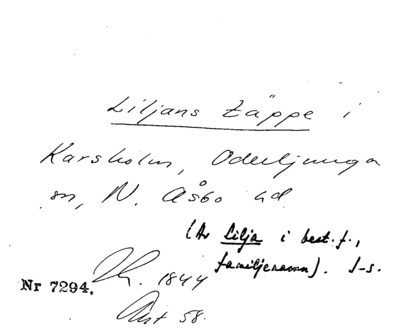 Liljans täppe i
Karsholm, Oderljunga
sn, N. Åsbo hd
(Av Lilja i best. f.,
familjenamn). J-s.
Nr 7294. 1844
58.